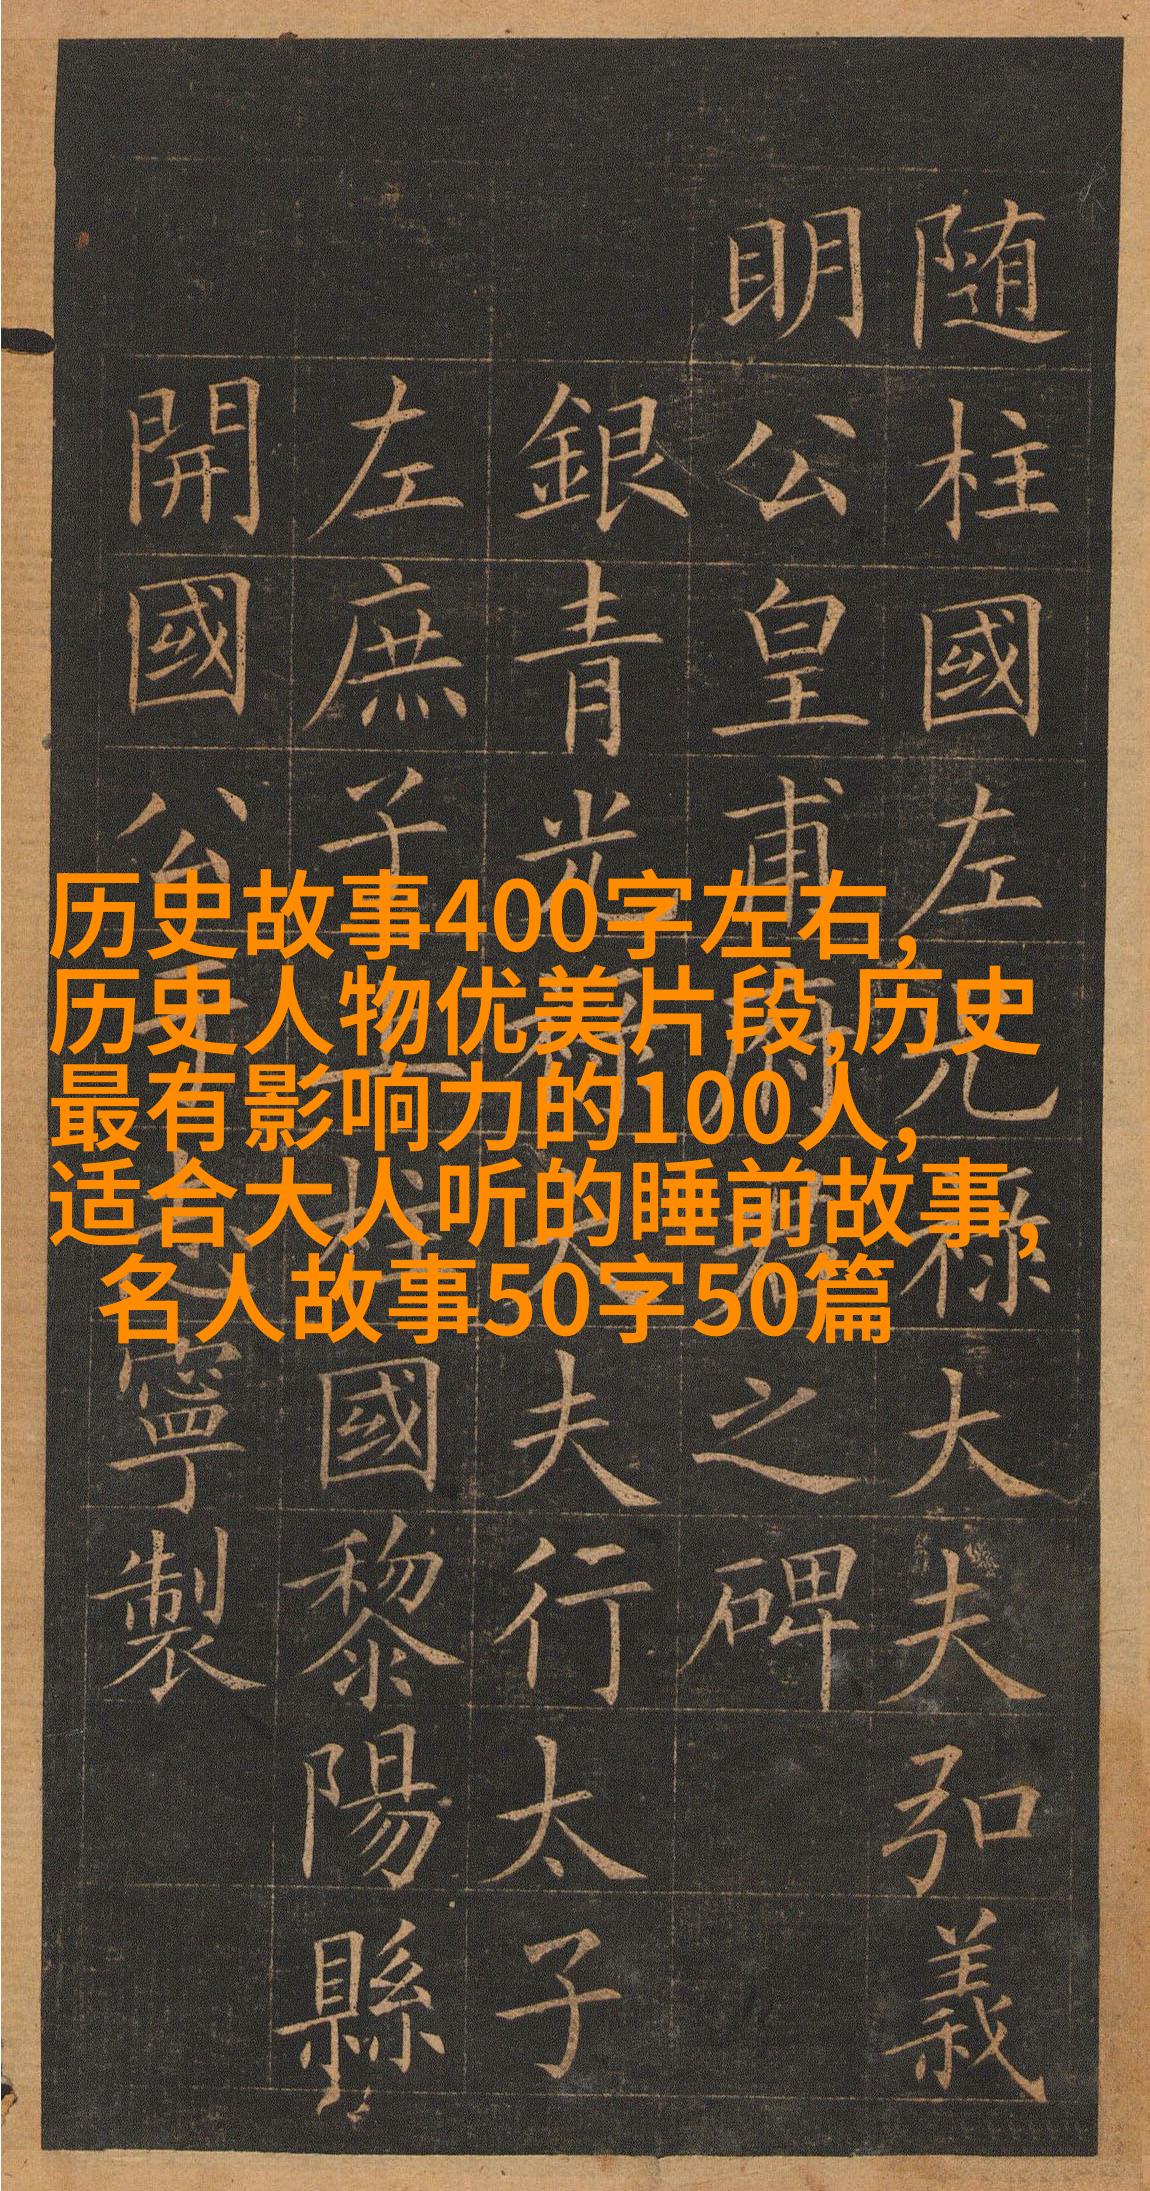 历史故事400字左右,
历史人物优美片段,历史
最有影响力的100人,
适合大人听的睡前故事,
名人故事50字50篇
随柱國左光禄大夫弘義
明公皇甫府君之碑
銀青光禄大夫行太子
左庶子上柱國黎陽縣
開國公于志寧製